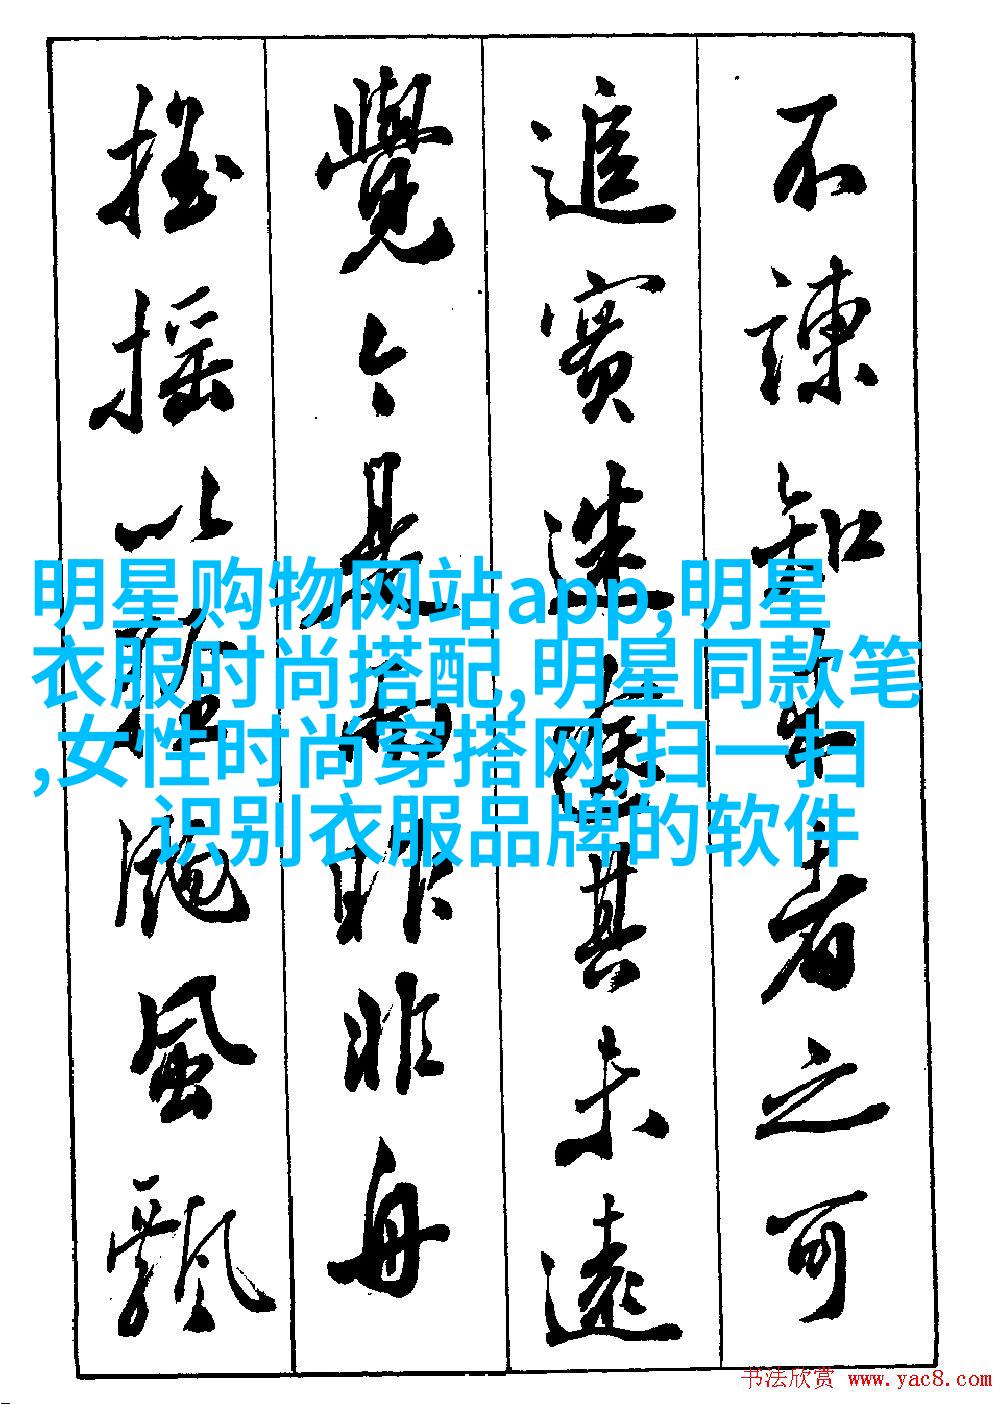 不諫知来者之可
追實迷塗其未遠
覺今是而昨非舟
摇摇以輕颺風飄
明星购物网站app,明星
衣服时尚搭配,明星同款笔
,女性时尚穿搭网,扫一扫
识别衣服品牌的软件
书法欣赏 www.yac8.com